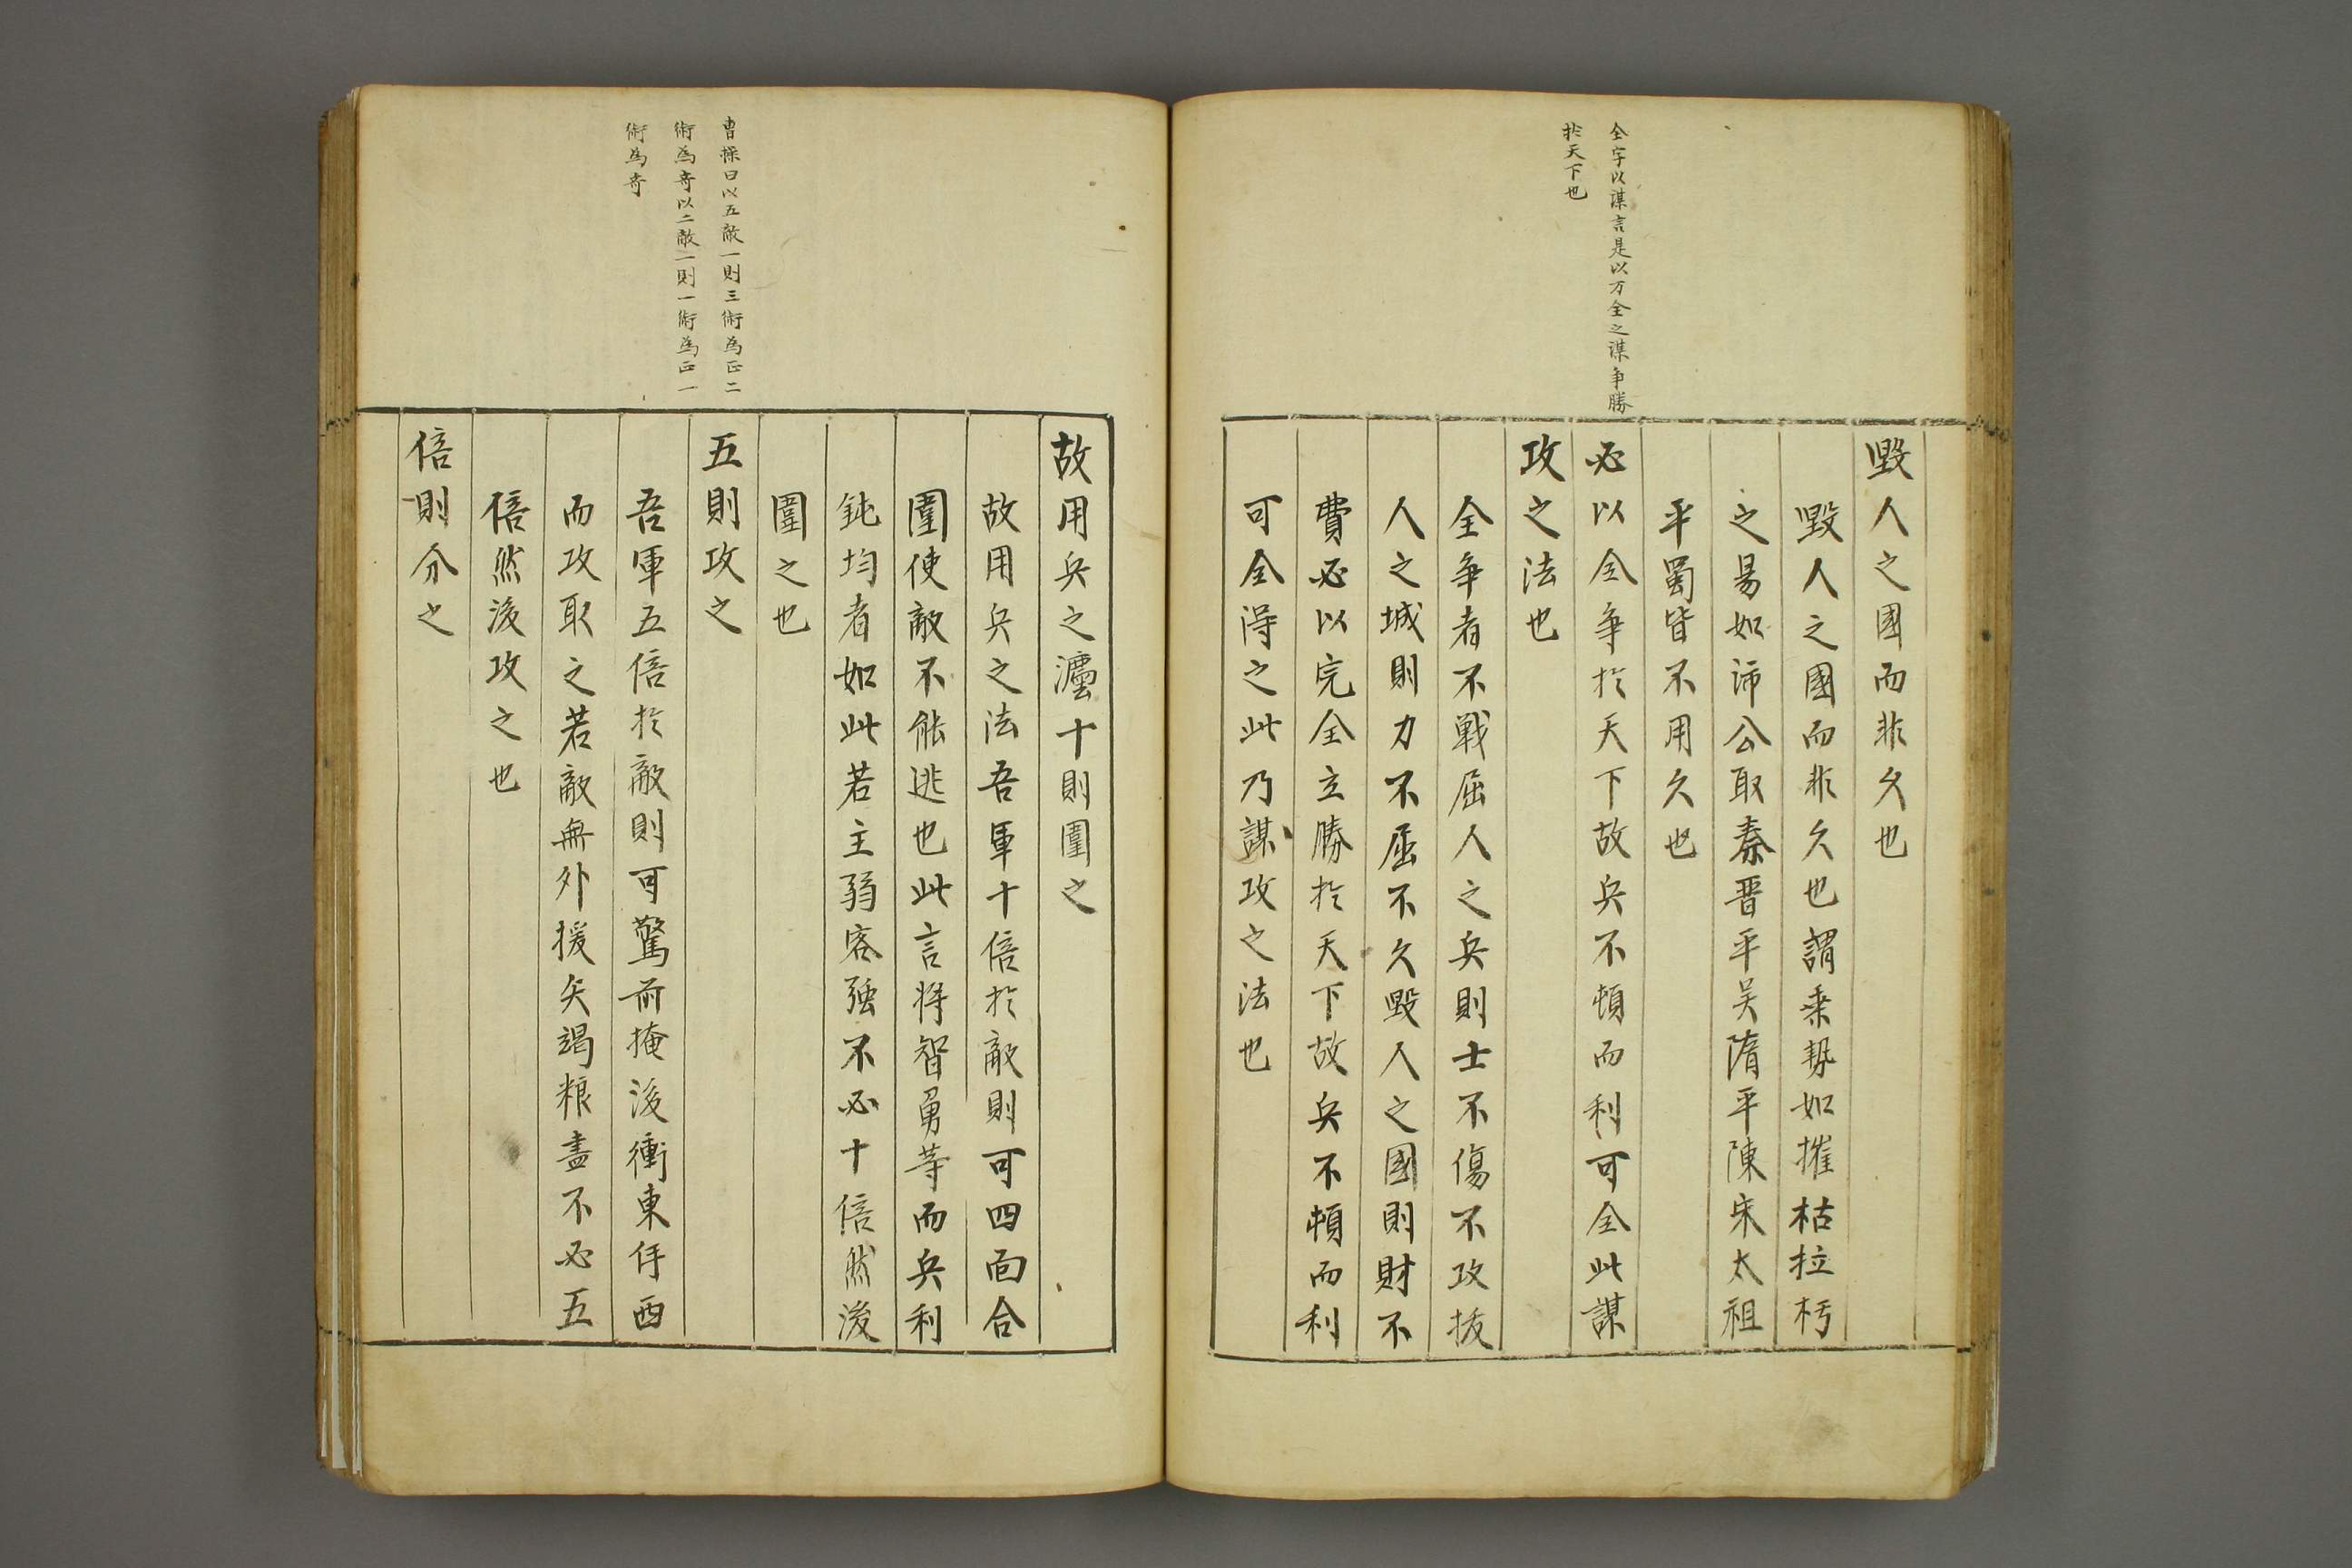 全字以謀言是以万全之謀争勝
於天下也
毀人之國而非久也
毀人之國而非久也謂乗勢如摧枯拉朽
之易如沛公取秦晋平吴隋平陳宋太祖
平蜀皆不用久也
必以全争於天下故兵不頓而利可全此謀
攻之法也
全争者不戦屈人之兵則士不傷不攻抜
人之城則力不屈不久毀人之國則財不
費必以完全立勝於天下故兵不頓而利
可全得之此乃謀攻之法也
曹操曰以五敵一則三術為正二
術為奇以二敵一則一術為正一
術為奇
故用兵之灋十則圍之
故用兵之法吾軍十倍於敵則可四面合
圍使敵不能逃也此言将智勇等而兵利
鈍均者如此若主弱客強不必十倍然後
圍之也
五則攻之
吾軍五倍於敵則可驚前掩後衝東西
而攻取之若敵無外援矢竭粮盡不必五
倍然後攻之也
倍則分之